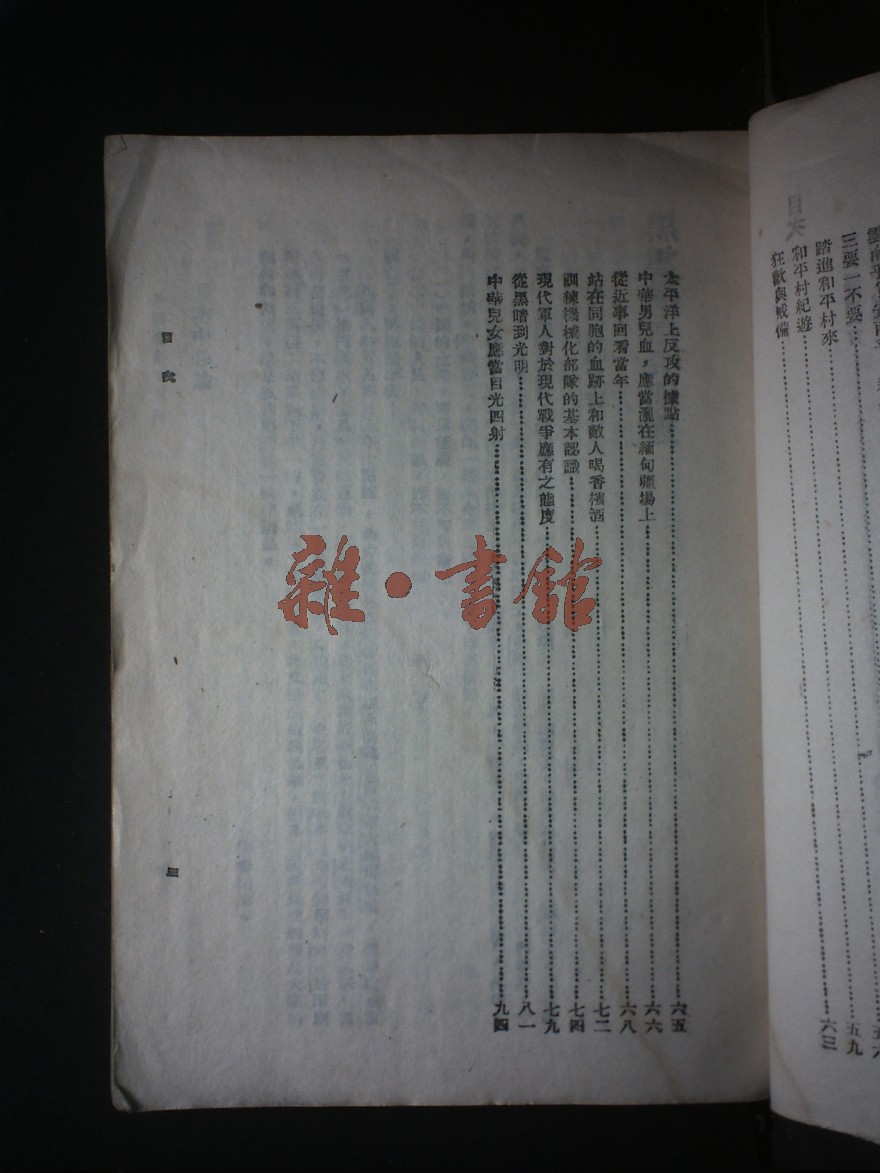 目次
三要一不要
五九
踏進和平村來
和平村紀遊
六三
狂歡與戒備
太平洋上反攻的據點……六五
中華男兒血，應當灑在緬甸疆場上……六六
從近事回看當年……六八
站在同胞的血跡上和敵人喝香檳酒……七二
訓練機械化部隊的基本認識……七四
現代軍人對於現代戰爭應有之態度……七九
從黑暗到光明……八一
中華兒女應當目光四射……九四
目次
三
雜·書館